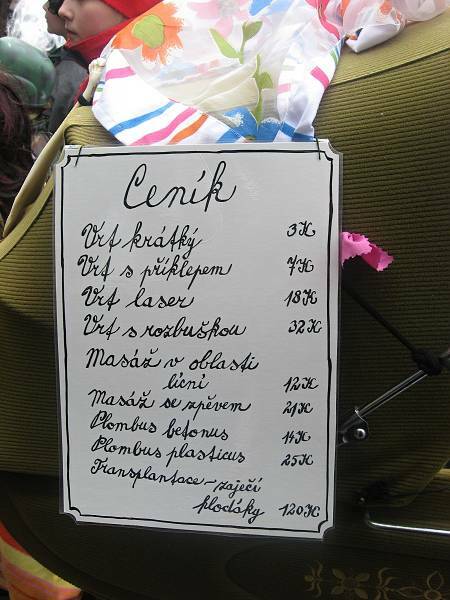 Ceník
Vrt krátký 3K
Vrt s příklepem 7K
Vrt laser 18K
Vrt s rozbuškou 32K
Masáž v oblasti
lícní 12K
Masáž se zpěvem 21K
Plombus betonus 14K
Plombus plasticus 25K
Transplantace - zaječí
ploďáky 120K